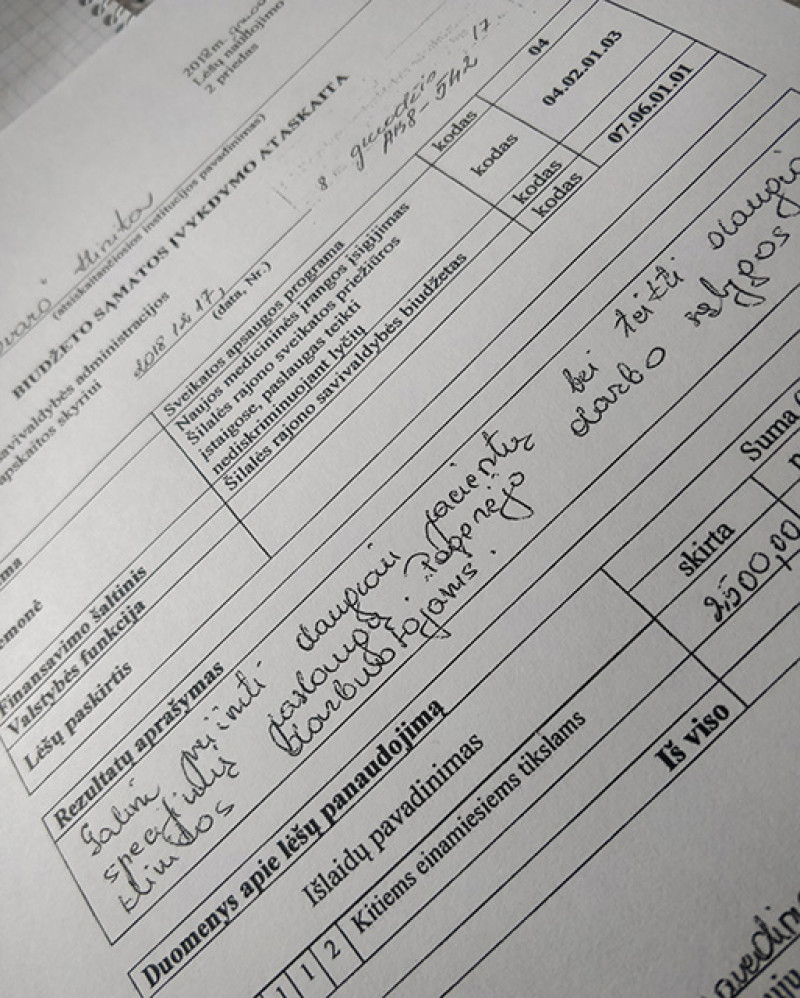 2018 m.
Lėšų naudojimo
2 priedas
(atsiskaitančiosios institucijos pavadinimas)
BIUDŽETO SĄMATOS ĮVYKDYMO ATASKAITA
8 gruodžio 17
AB8-542
savivaldybės administracijos
apskaitos skyriui
2018 12 17,
(data, Nr.)
Sveikatos apsaugos programa
kodas
04
Naujos medicininės įrangos įsigijimas
Šilalės rajono sveikatos priežiūros
įstaigose, paslaugas teikti
nediskriminuojant lyčių
kodas
04.02.01.03
Finansavimo šaltinis
Šilalės rajono savivaldybės biudžetas
kodas
Valstybės funkcija
kodas
07.06.01.01
Lėšų paskirtis
Rezultatų aprašymas
Galima priimti daugiau pacientų bei teikti
paslaugą. Pagerėjo darbo sąlygos
darbuotojams.
Duomenys apie lėšų panaudojimą
Išlaidų pavadinimas
Suma
skirta
1 1 2 Kitiems einamiesiems tikslams
2500,00
Iš viso